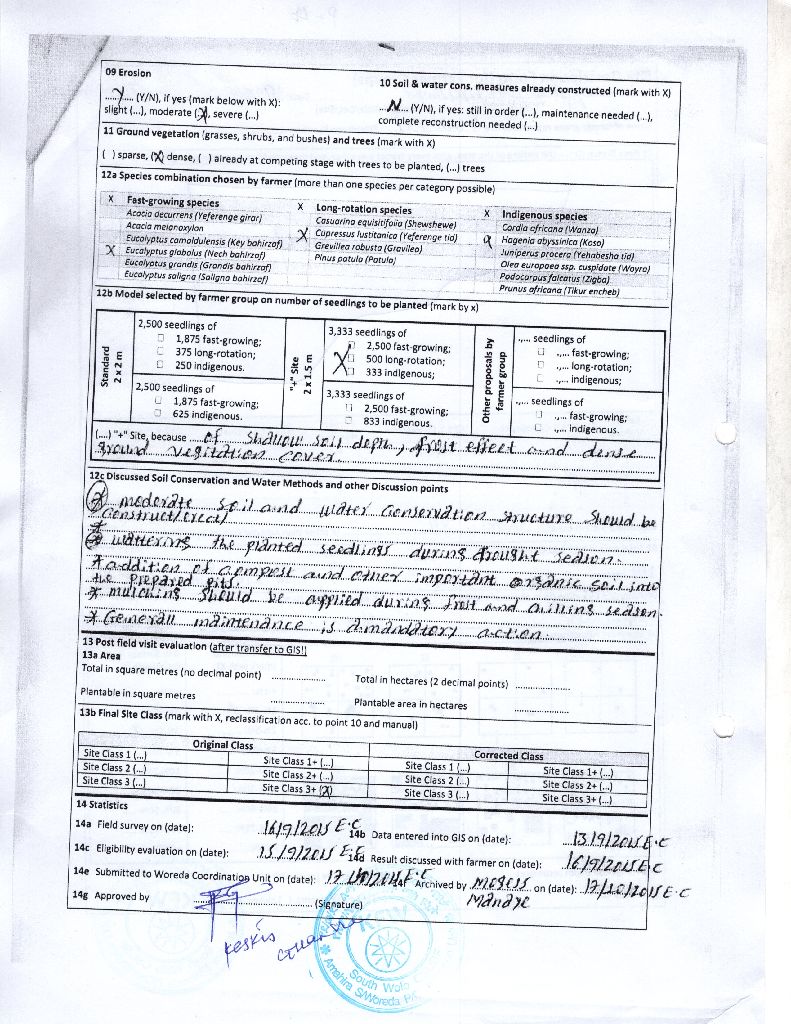 09 Erosion
10 Soil & water cons. measures already constructed (mark with X)
.....Y.... (Y/N), if yes (mark below with X):
slight (...), moderate (X), severe (...)
...N... (Y/N), if yes: still in order (...), maintenance needed (..),
complete reconstruction needed (...)
11 Ground vegetation (grasses, shrubs, and bushes) and trees (mark with X)
( ) sparse, (X) dense, ( ) already at competing stage with trees to be planted, (...) trees
12a Species combination chosen by farmer (more than one species per category possible)
X Fast-growing species
Acacia decurrens (Yeferenge girar)
Acacia melanoxylon
Eucalyptus camaldulensis (Key bahirzaf)
X Eucalyptus globolus (Nech bahirzaf)
Eucalyptus grandis (Grandis bahirzaf)
Eucalyptus saligna (Saligna bahirzaf)
X Long-rotation species
Casuarina equisitifolia (Shewshewe)
X Cupressus lustitanica (Yeferenge tid)
Grevillea robusta (Gravileo)
Pinus patula (Patula)
X Indigenous species
Cordia africana (Wanza)
Hagenia abyssinica (Koso)
Juniperus procera (Yehabesha tid)
Olea europaea ssp. cuspidate (Woyra)
Podocarpus falcatus (Zigba)
Prunus africana (Tikur encheb)
12b Model selected by farmer group on number of seedlings to be planted (mark by x)
Standard
2 x 2 m
2,500 seedlings of
☐ 1,875 fast-growing;
☐ 375 long-rotation;
☐ 250 indigenous.
2,500 seedlings of
☐ 1,875 fast-growing;
☐ 625 indigenous.
"+" Site
2 x 1.5 m
3,333 seedlings of
☐ 2,500 fast-growing;
X ☐ 500 long-rotation;
☐ 333 indigenous;
3,333 seedlings of
☐ 2,500 fast-growing;
☐ 833 indigenous.
Other proposals by
farmer group
.,... seedlings of
☐ .,... fast-growing;
☐ .,... long-rotation;
☐ .,... indigenous;
.,... seedlings of
☐ .,... fast-growing;
☐ .,... indigenous.
(....) "+" Site, because of shallow soil depth, frost effect and dense
ground vegitation cover
12c Discussed Soil Conservation and Water Methods and other Discussion points
* moderate soil and water conservation structure should be
construct/erect/
* wattering the planted seedlings during drought season.
* addition of compost and other important organic soil into
the prepared pits.
* mulching should be applied during frost and chilling season.
* Generall maintenance is a mandatory action.
13 Post field visit evaluation (after transfer to GIS!!)
13a Area
Total in square metres (no decimal point) ...................
Total in hectares (2 decimal points) ...................
Plantable in square metres ...................
Plantable area in hectares ...................
13b Final Site Class (mark with X, reclassification acc. to point 10 and manual)
Original Class
Corrected Class
Site Class 1 (...) Site Class 1+ (...) Site Class 1 (...) Site Class 1+ (...)
Site Class 2 (...) Site Class 2+ (...) Site Class 2 (...) Site Class 2+ (...)
Site Class 3 (...) Site Class 3+ (X) Site Class 3 (...) Site Class 3+ (...)
14 Statistics
14a Field survey on (date): 14/9/2015 E.C
14b Data entered into GIS on (date): 13/9/2015 E.C
14c Eligibility evaluation on (date): 15/9/2015 E.C
14d Result discussed with farmer on (date): 16/9/2015 E.C
14e Submitted to Woreda Coordination Unit on (date): 12/10/2015 E.C
14f Archived by on (date): 12/10/2015 E.C
14g Approved by (Signature)
South Wolo
Amahira S/Woreda